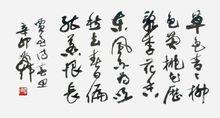 草色青青柳
色黄桃花歷
亂李花香
东风不为吹
愁去春日偏
能惹恨长
贾至诗春思
辛卯